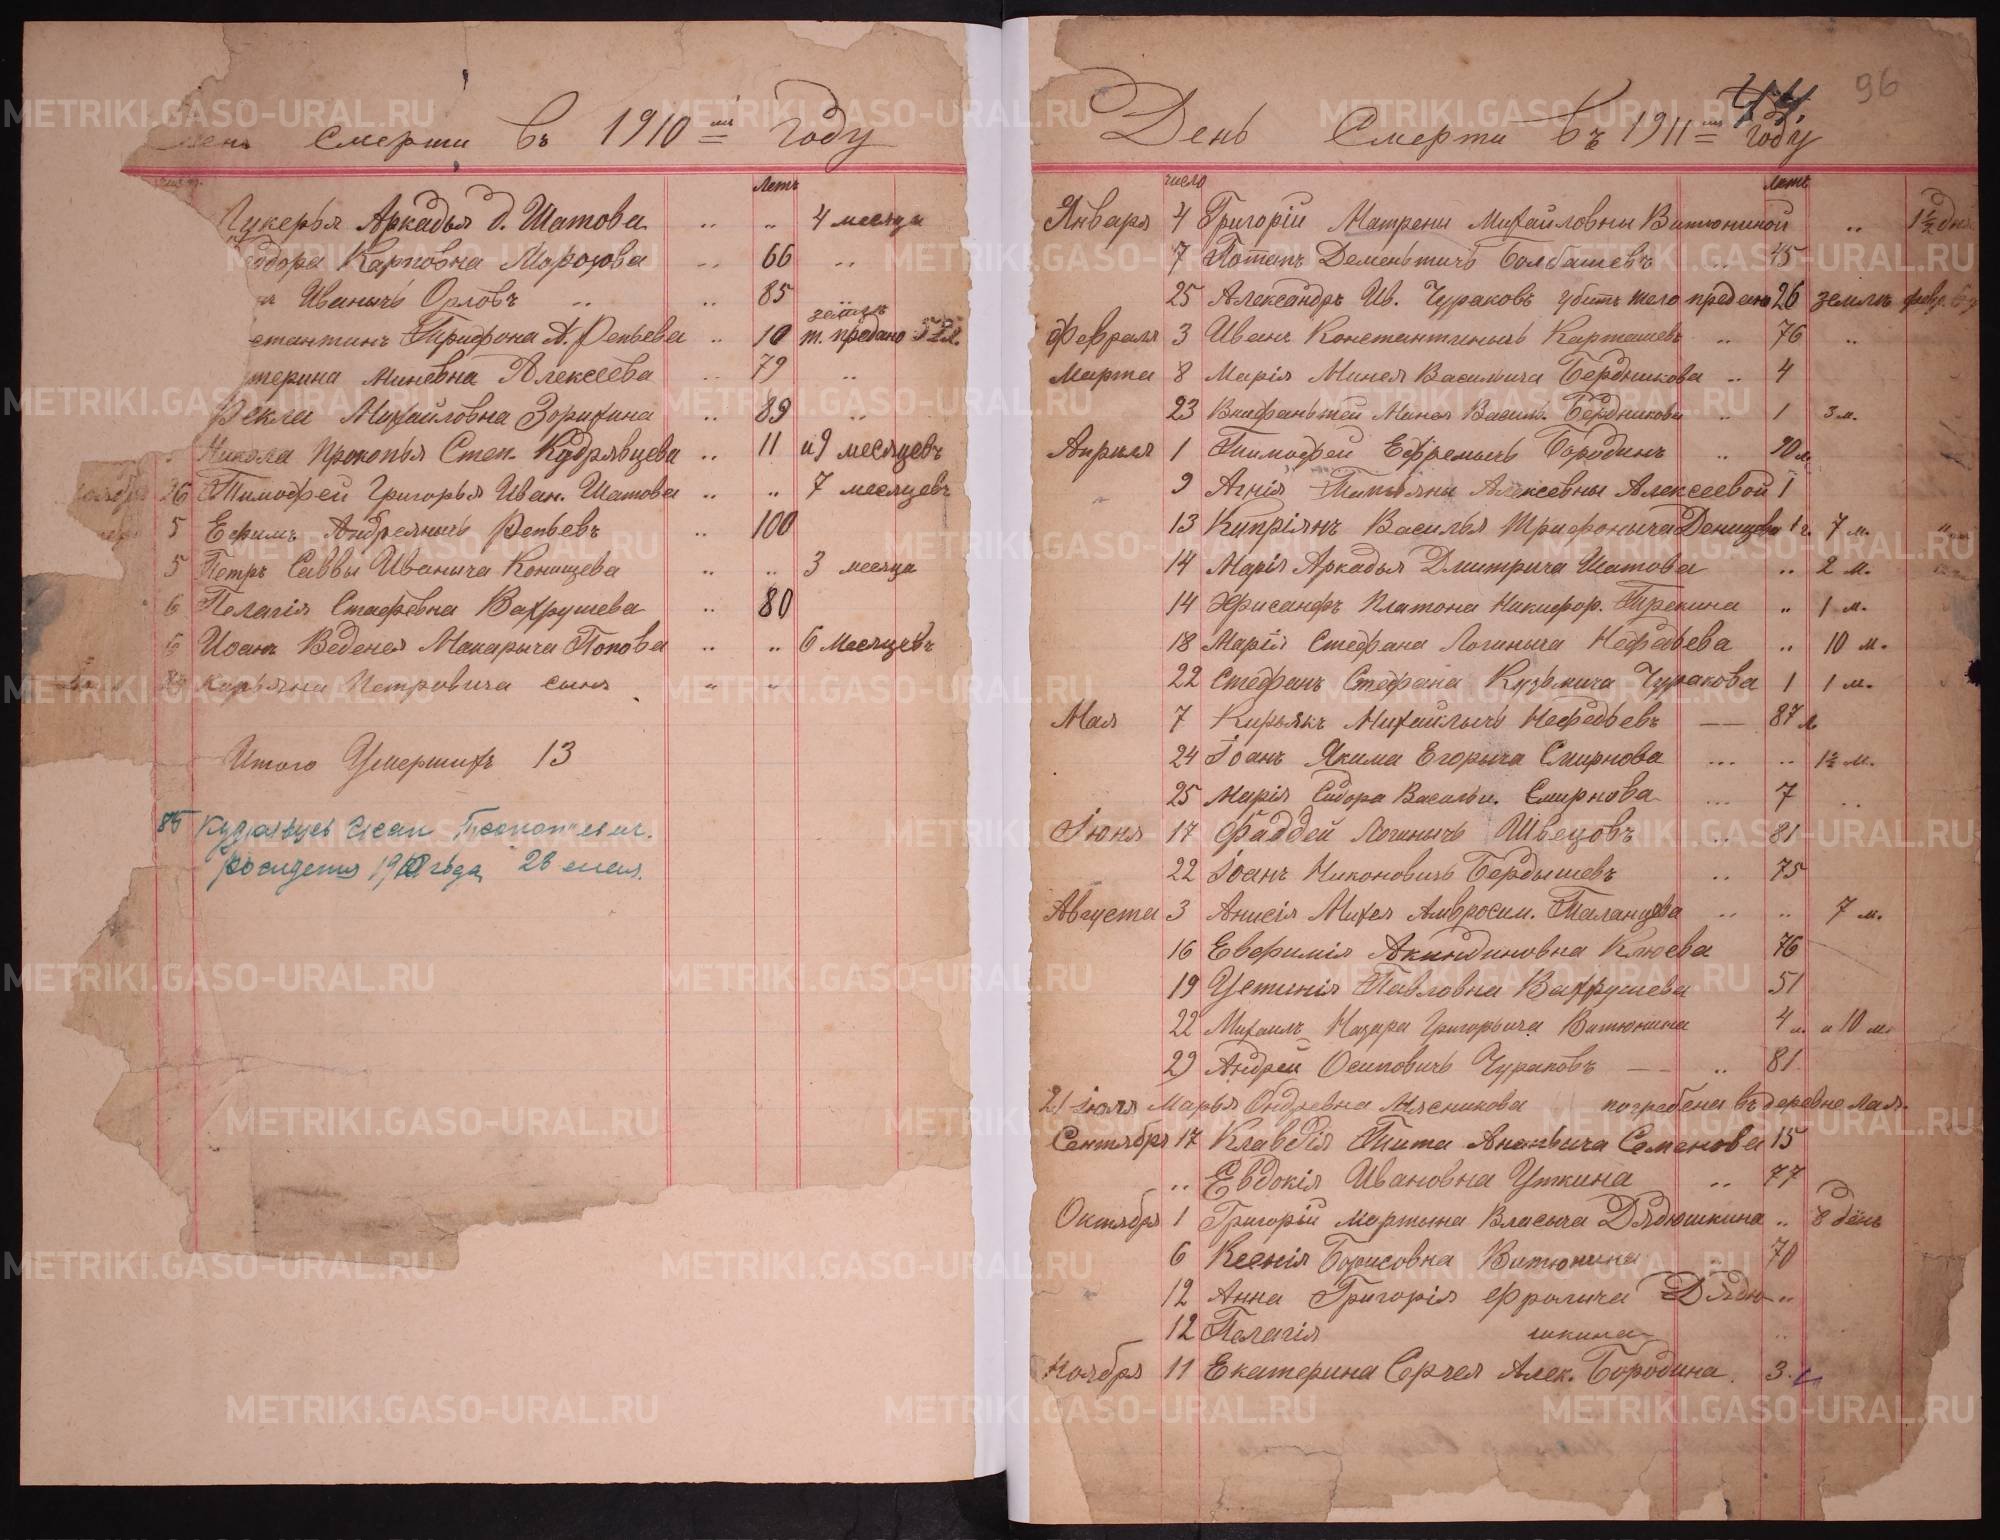 Смерти въ 1910 мъ году
Летъ
Аркадья д. Шатова .. „ 4 месяца
Карповна Морозова .. 66 ..
Иванычъ Орловъ .. .. 85
земле
Трифона А. Репьева .. 10 т. предано
Миневна Алексеева .. 79 ..
Фекла Михайловна Зорихина .. 89 ..
Никола Прокопья Степ. Кудрявцева .. 11 и 9 месяцевъ
26 Тимофей Григорья Иван. Шатова .. „ 7 месяцевъ
5 Ефимъ Андреянычъ Репьевъ .. 100
5 Петръ Саввы Иваныча Конищева .. .. 3 месяца
6 Пелагія Стафевна Вахрушева .. 80
6 Иоанъ Веденея Макарыча Попова .. .. 6 месяцевъ
Кирьяна Петровича сына „ „
Итого Умершихъ 13
28 мая.
96
День Смерти Въ 1911 мъ году
число летъ
Января 4 Григорій Матрены Михайловны Витюниной .. 1½ дня
7 Потапъ Дементьичъ Болбашевъ .. 45
25 Александръ Ив. Чураковъ убитъ тело предано 26 земле февр.
Февраля 3 Иванъ Константинычъ Карташевъ .. 76 ..
Марта 8 Марія Минея Васильича Бердникова .. 4
23 Минея Василь. Бердникова .. 1 3 м.
Апреля 1 Тимофей Ефремычъ Бородинъ ..
9 Агнія Татьяны Алексевны Алексеевой 1
13 Кипріянъ Василья Трифоныча Денищева 1 г. 7 м.
14 Марія Аркадья Дмитрича Шатова .. 2 м.
14 Хрисанфъ Платона Никифор. Тирекина „ 1 м.
18 Марія Стефана Логиныча Нефадьева .. 10 м.
22 Стефанъ Стефана Кузьмича Чуракова 1 1 м.
Мая 7 Кирьякъ Михайлычъ Нефадьевъ — 87 л
24 Іоанъ Якима Егорыча Смирнова ... .. 1½ м.
25 Марія Сидора Васильи. Смирнова ... 7 ..
Іюня 17 Фаддей Логинычъ Швецовъ .. 81
22 Іоанъ Никоновичъ Бердышевъ .. 75
Августа 3 Анисія Михея Амвросим. Таланцева .. .. 7 м.
16 Евфимія Акиндиновна Клюева 76
19 Устинія Павловна Вахрушева 51
22 Михаилъ Назара Григорьича Витюнина 4 и 10 м
29 Андрей Осиповичъ Чураковъ — .. 81
21 Іюля Марья Ондревна Мясникова погребена въ деревне
Сентября 17 Клавдія Тита Ананьича Семенова 15
.. Евдокія Ивановна Уткина .. 77
Октября 1 Григорій Мартына Власыча Дядюшкина .. 8 день
6 Ксенія Борисовна Витюнина .. 70
12 Анна Григорія Фролыча Дядю- ..
12 Пелагія шкина ..
Ноября 11 Екатерина Сергея Алек. Бородина. 3.